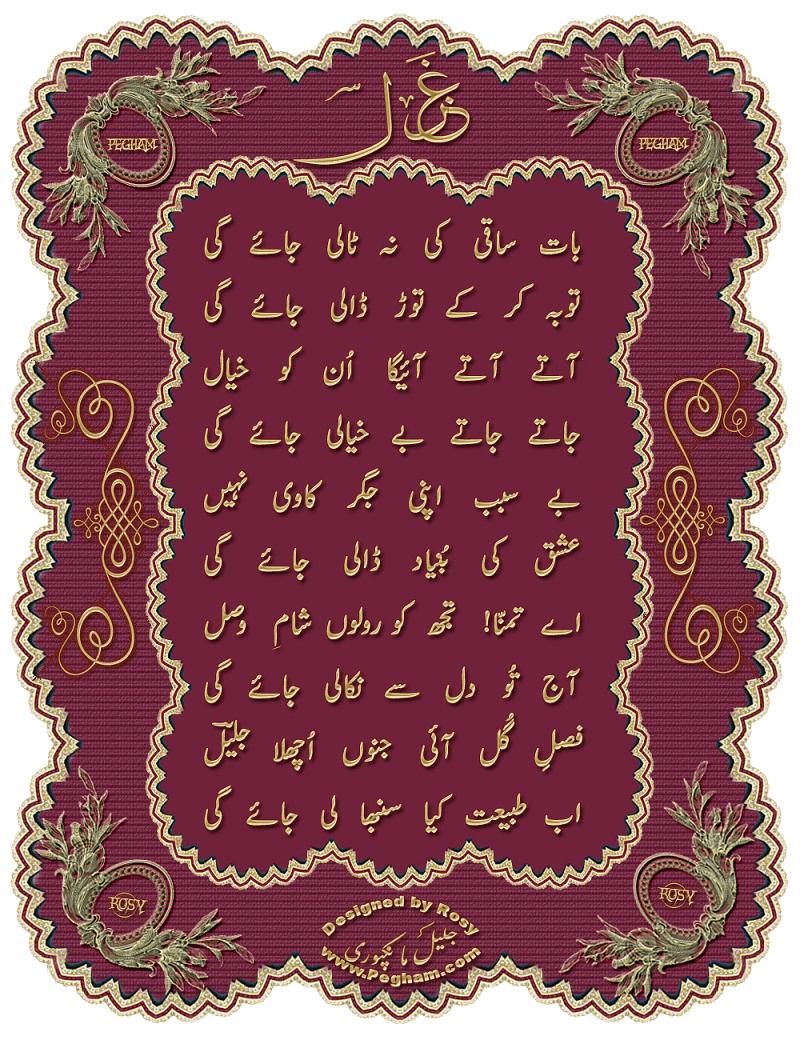 غزل
PEGHAM
PEGHAM
بات ساقی کی نہ ٹالی جائے گی
توبہ کر کے توڑ ڈالی جائے گی
آتے آتے آئیگا اُن کو خیال
جاتے جاتے بے خیالی جائے گی
بے سبب اپنی جگر کاوی نہیں
عشق کی بُنیاد ڈالی جائے گی
اے تمنّا! تجھ کو رولوں شامِ وصل
آج تُو دل سے نکالی جائے گی
فصلِ گُل آئی جنوں اُچھلا جلیلؔ
اب طبیعت کیا سنبھا لی جائے گی
ROSY
ROSY
Designed by Rosy
جلیل مانکپوری
www.Pegham.com